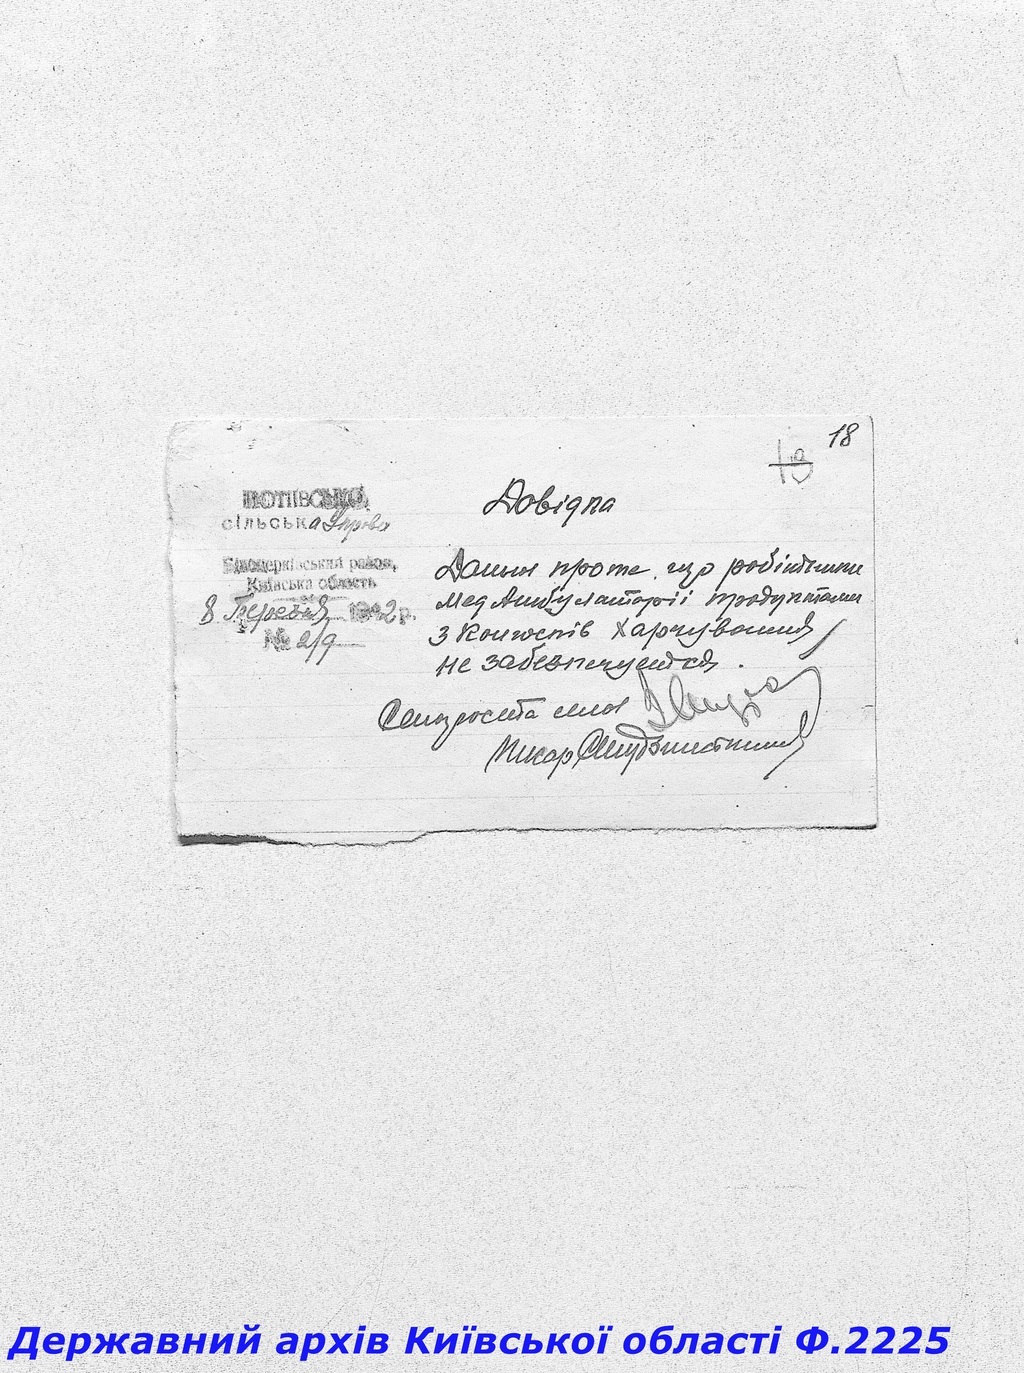 18
13
ПОТІЇВСЬКА
сільська Управа
Білоцерківський район,
Київська область
8 Березня 1942 р.
№ 219
Довідка
Дання про те, що робітники
Мед Амбулаторії продуктами
з Колгоспів Харчування
не забезпечуются.
Староста села
Писар
Державний архів Київської області Ф.2225